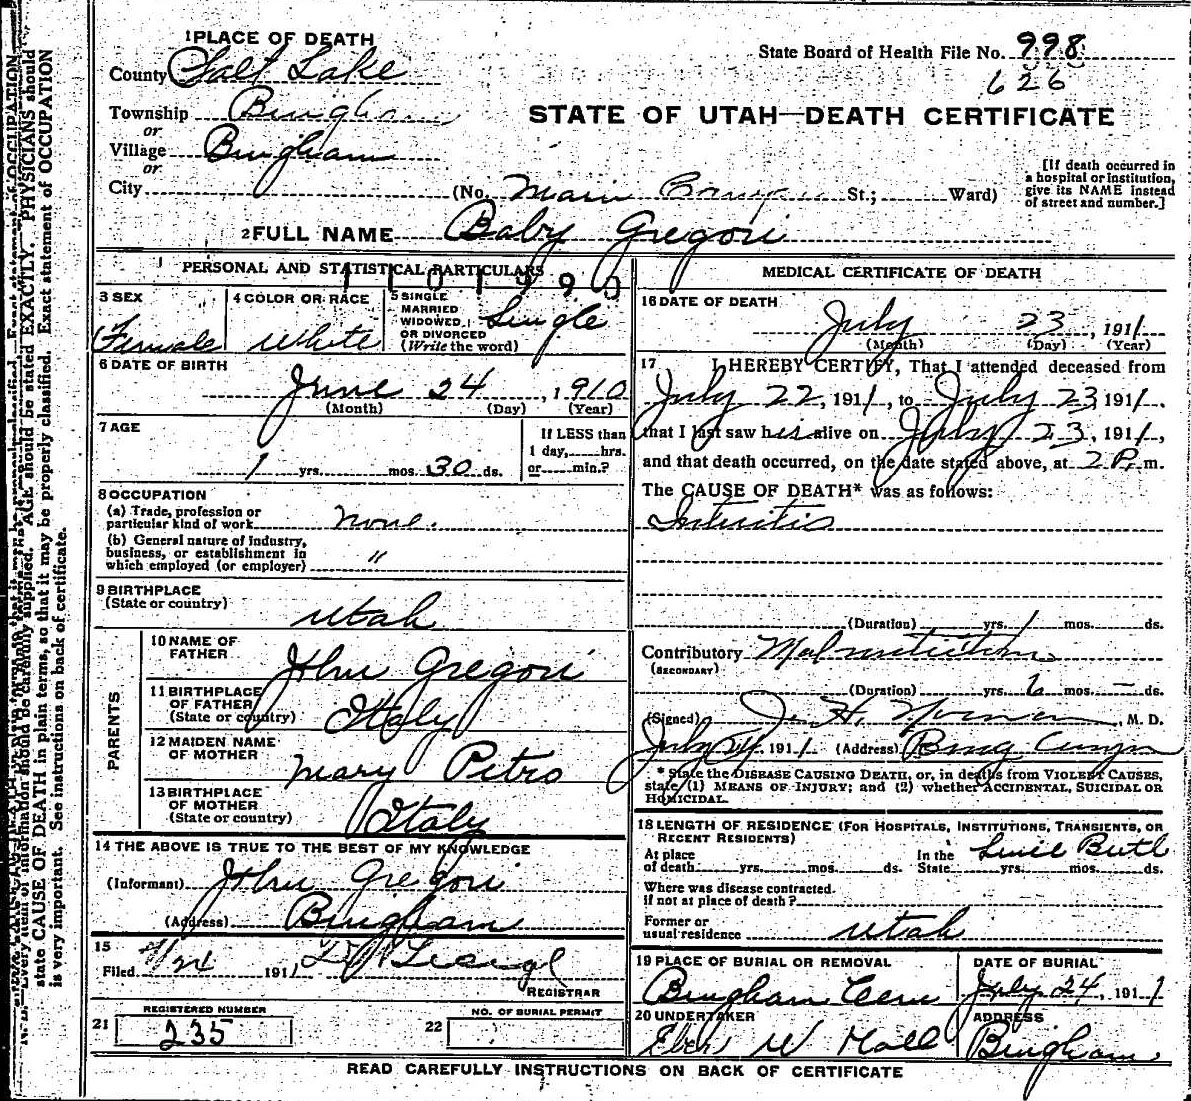 1 PLACE OF DEATH
County Salt Lake
Township Bingham
or
Village Bingham
or
City (No. Main St.; Ward)
State Board of Health File No. 998
626
STATE OF UTAH—DEATH CERTIFICATE
[If death occurred in
a hospital or institution,
give its NAME instead
of street and number.]
2 FULL NAME Baby Gregori
PERSONAL AND STATISTICAL PARTICULARS
3 SEX Female
4 COLOR OR RACE White
5 SINGLE
MARRIED
WIDOWED,
OR DIVORCED
(Write the word) Single
6 DATE OF BIRTH
June 24, 1910
(Month) (Day) (Year)
7 AGE
1 yrs. mos. 30 ds.
If LESS than
1 day, hrs.
or min.?
8 OCCUPATION
(a) Trade, profession or
particular kind of work none.
(b) General nature of industry,
business, or establishment in
which employed (or employer) "
9 BIRTHPLACE
(State or country)
Utah
PARENTS
10 NAME OF
FATHER
John Gregori
11 BIRTHPLACE
OF FATHER
(State or country) Italy
12 MAIDEN NAME
OF MOTHER
Mary Petro
13 BIRTHPLACE
OF MOTHER
(State or country) Italy
14 THE ABOVE IS TRUE TO THE BEST OF MY KNOWLEDGE
(Informant) John Gregori
(Address) Bingham
15
Filed 191
REGISTRAR
21 REGISTERED NUMBER
235
22 NO. OF BURIAL PERMIT
MEDICAL CERTIFICATE OF DEATH
16 DATE OF DEATH
July 23, 1911
(Month) (Day) (Year)
17 I HEREBY CERTIFY, That I attended deceased from
July 22, 1911, to July 23, 1911,
that I last saw her alive on July 23, 1911,
and that death occurred, on the date stated above, at 2 P. m.
The CAUSE OF DEATH* was as follows:
Intuitis
(Duration) yrs. 1 mos. ds.
Contributory Malnutrition
(SECONDARY)
(Duration) yrs. 6 mos. — ds.
(Signed) J. H. M. D.
July 24, 1911 (Address) Bing
* State the DISEASE CAUSING DEATH, or, in deaths from VIOLENT CAUSES,
state (1) MEANS OF INJURY; and (2) whether ACCIDENTAL, SUICIDAL OR
HOMICIDAL.
18 LENGTH OF RESIDENCE (FOR HOSPITALS, INSTITUTIONS, TRANSIENTS, OR
RECENT RESIDENTS)
At place
of death yrs. mos. ds.
In the
State yrs. mos. ds.
Where was disease contracted.
if not at place of death?
Former or
usual residence Utah
19 PLACE OF BURIAL OR REMOVAL
Bingham Cem
DATE OF BURIAL
July 24, 1911
20 UNDERTAKER
Eber W Hall
ADDRESS
Bingham
READ CAREFULLY INSTRUCTIONS ON BACK OF CERTIFICATE
Every item of information should be carefully supplied. AGE should be stated EXACTLY. PHYSICIANS should
state CAUSE OF DEATH in plain terms, so that it may be properly classified. Exact statement of OCCUPATION
is very important. See instructions on back of certificate.